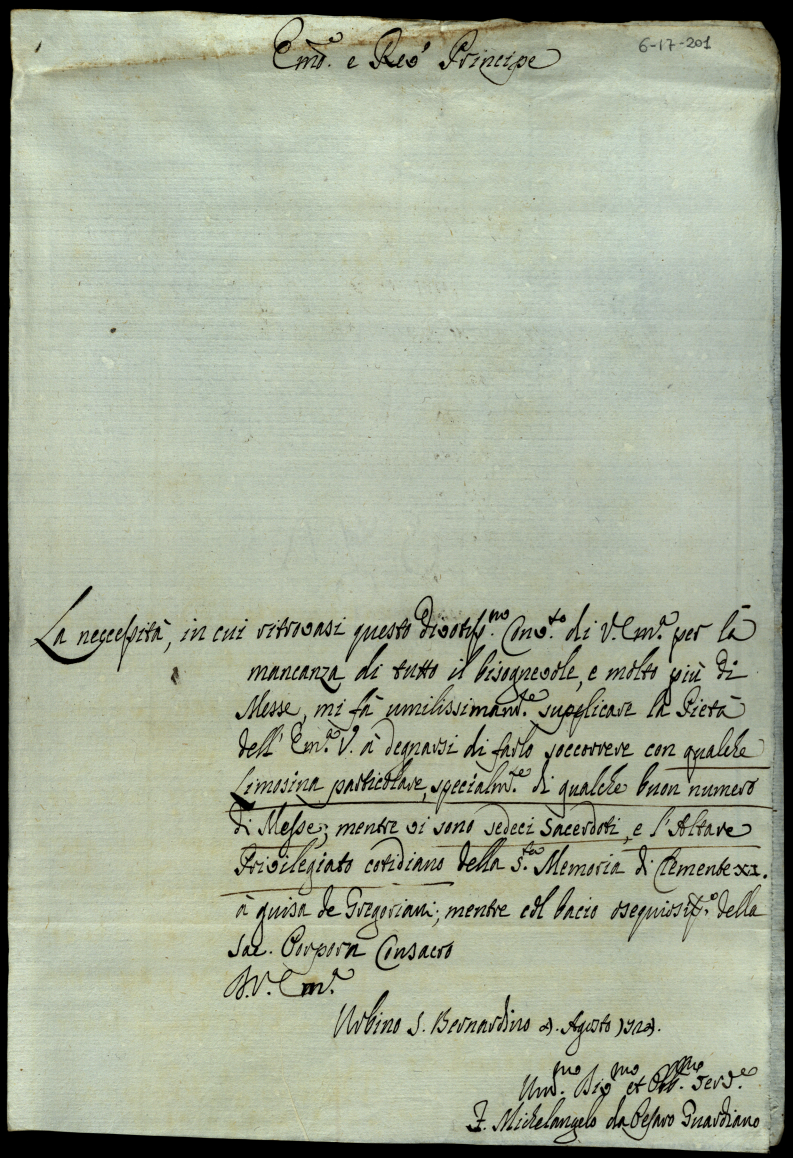 6-17-201
Emo. e Revo Principe
La neccessità, in cui ritrovasi questo Divotissmo. Convto. di V. Ema. per la
mancanza di tutto il bisognevole, e molto più di
Messe, mi fà umilissimamte. supplicare la Pietà
dell' Ema. V. à degnarsi di farlo soccorrere con qualche
Limosina particolare, specialmte. di qualche buon numero
di Messe; mentre vi sono sedeci Sacerdoti, e l'Altare
Privilegiato cotidiano della sta. Memoria di Clemente XI.
à guisa de Gregoriani; mentre col bacio osequiosisso. della
Sac. Porpora Consacro
D. V. Ema.
Urbino S. Bernardino 4. Agosto 1724.
Ummo. Divmo et Obbmo. Serve.
F. Michelangelo da Pesaro Guardiano